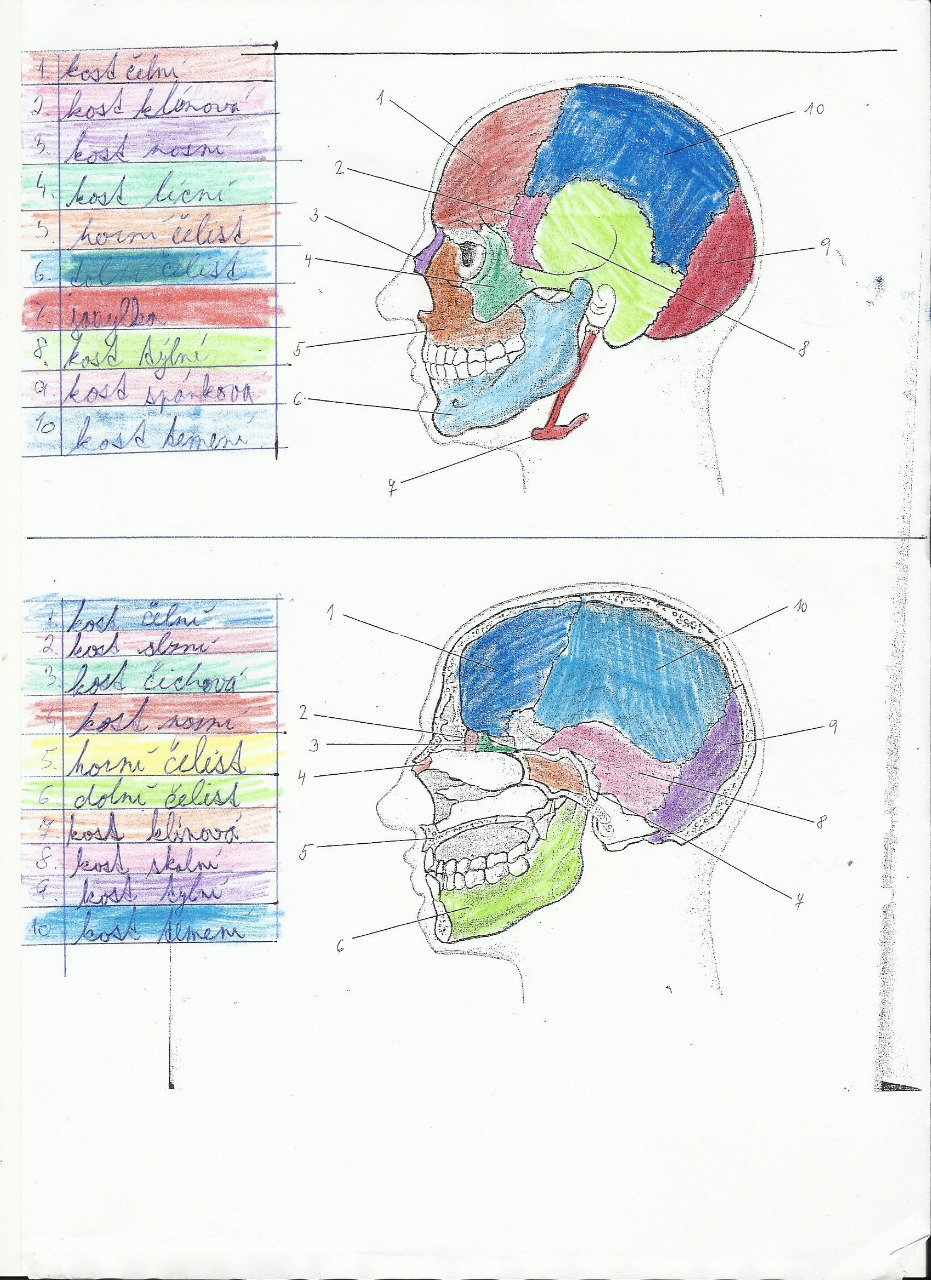 1. kost čelní
2. kost klínová
3. kost nosní
4. kost lícní
5. horní čelist
6. dolní čelist
7. jazylka
8. kost týlní
9. kost spánková
10 kost temení
1
2
3
4
5
6
7
8
9
10
1. kost čelní
2. kost slzní
3. kost čichová
4. kost nosní
5. horní čelist
6 dolní čelist
7 kost klínová
8. kost skalní
9. kost týlní
10 kost temení
1
2
3
4
5
6
7
8
9
10